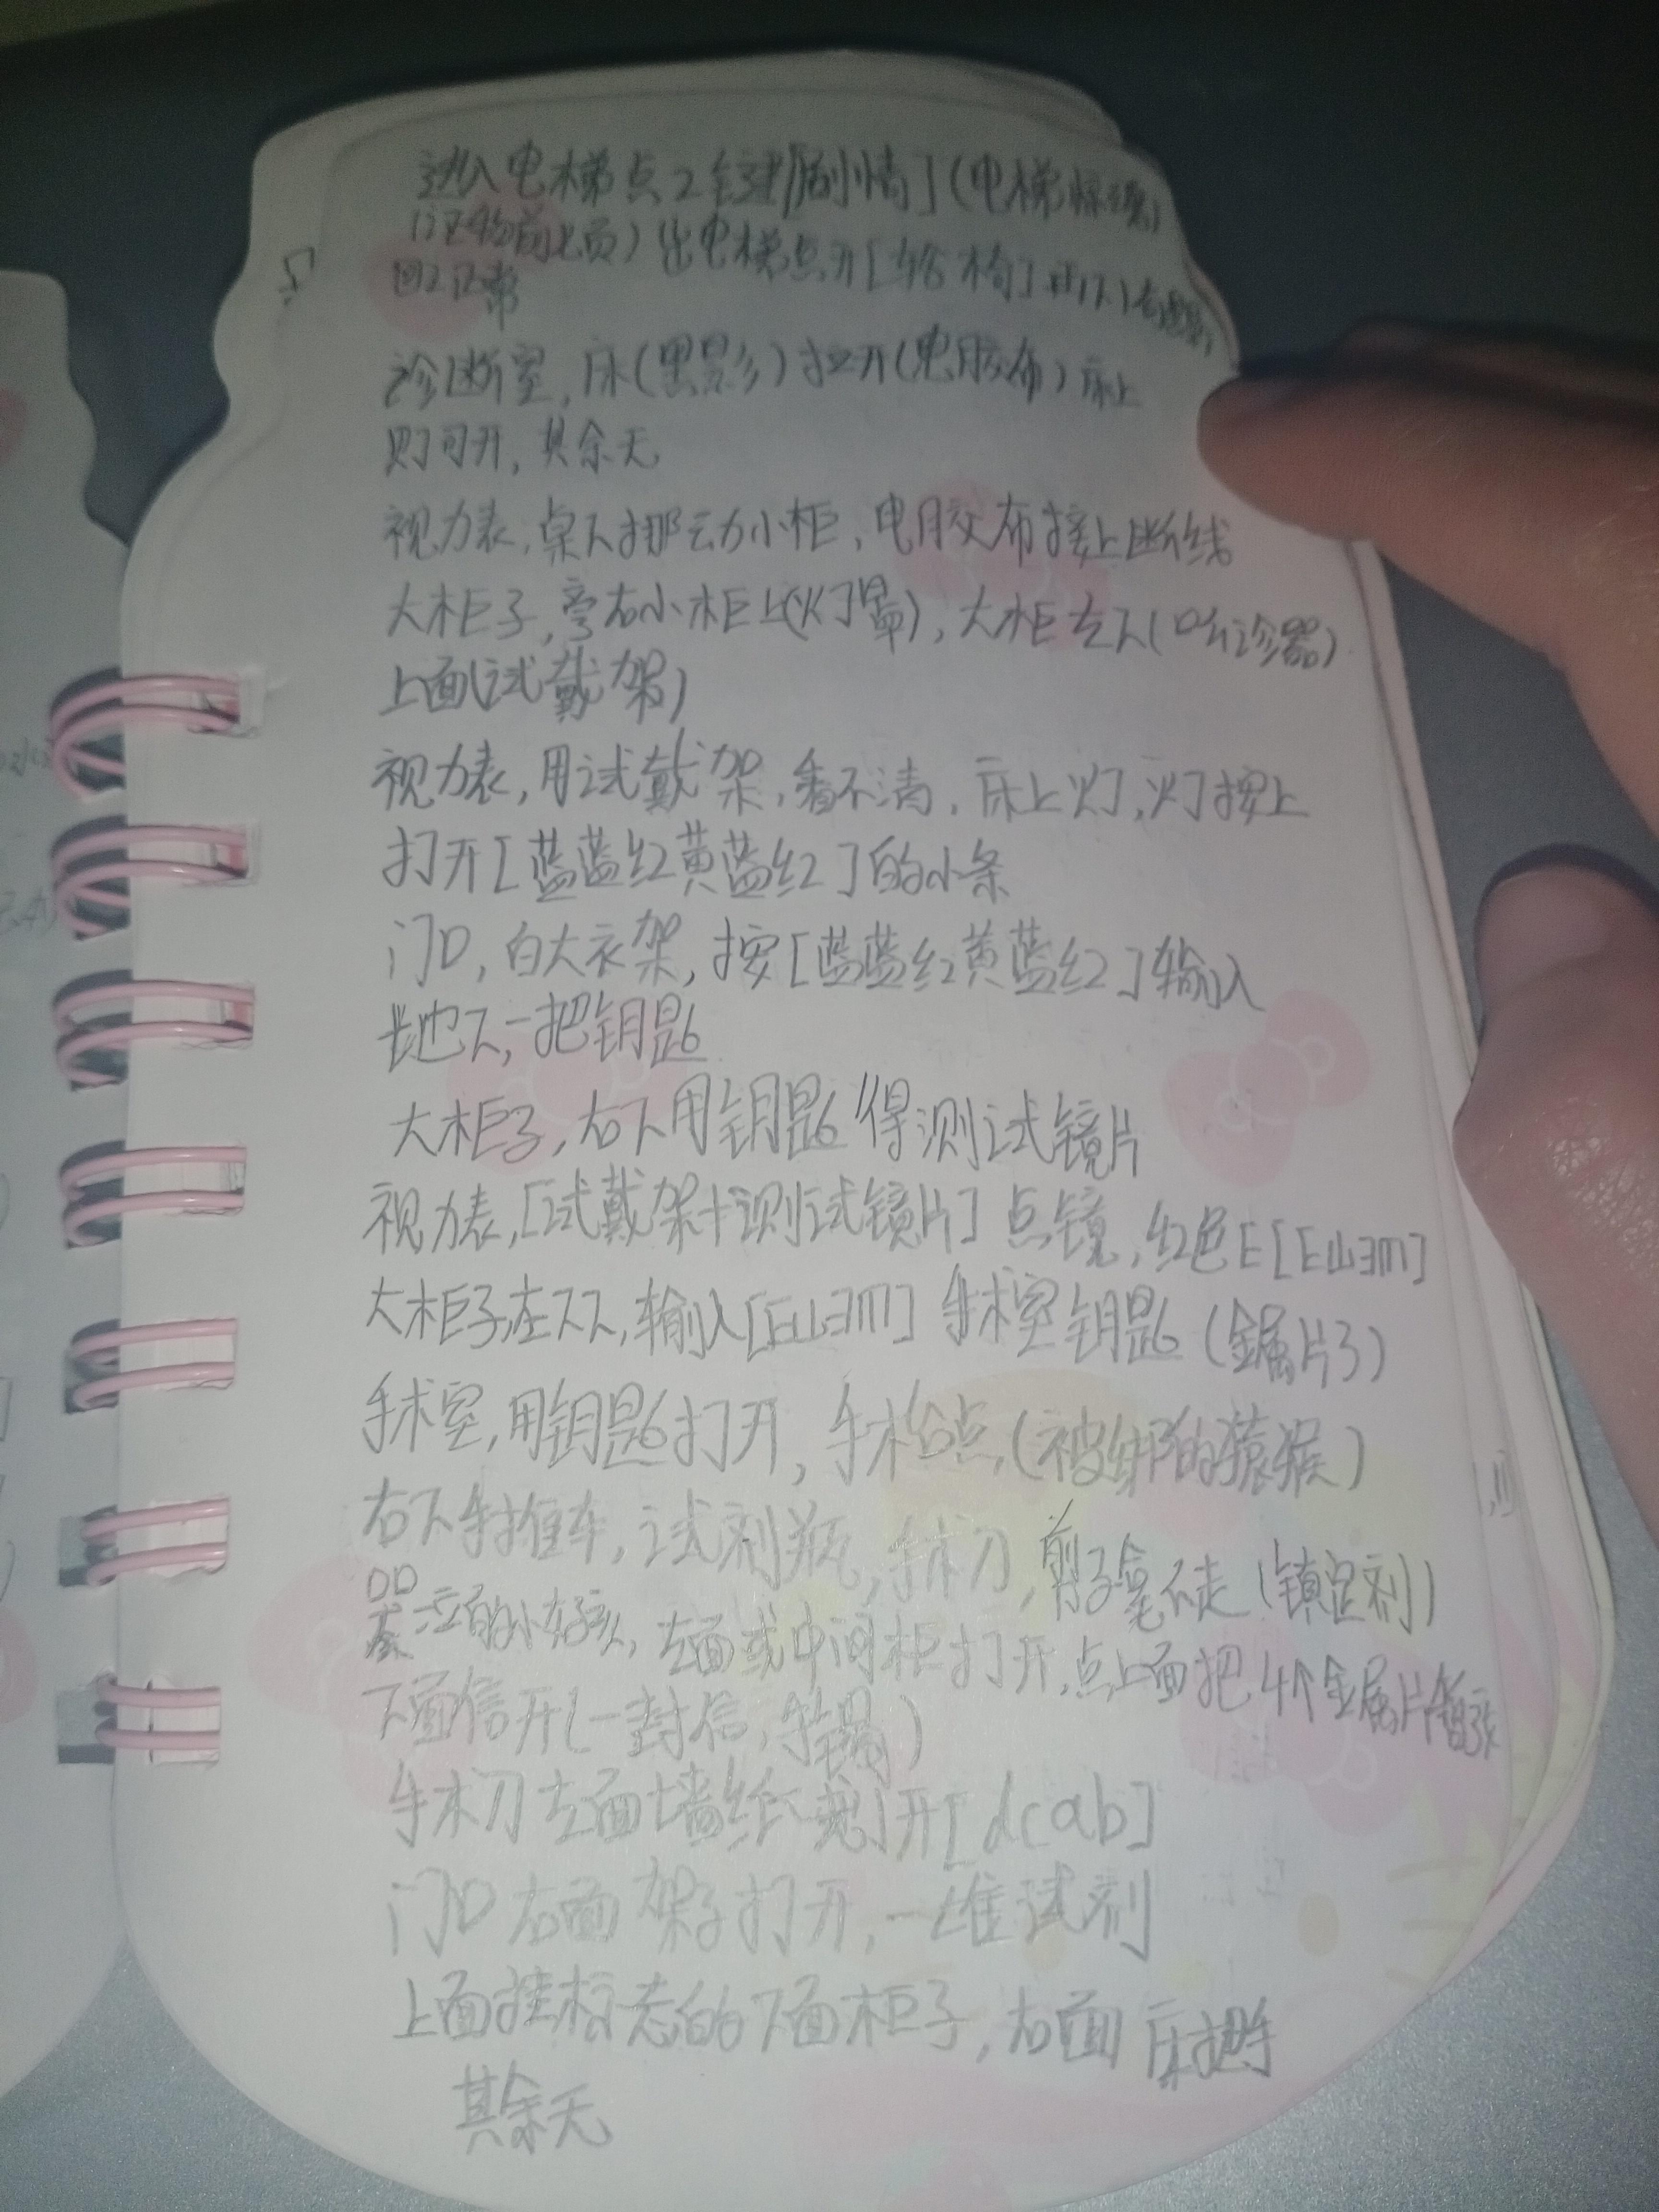 进入电梯点2键[剧情](电梯惊魂)
出电梯点开[轮椅]
诊断室,床(黑影)拉开(电胶布)床上
则可开,其余无
视力表,桌下挪动小柜,电胶布接上断线
大柜子,旁右小柜上(灯罩),大柜左下(听诊器)
上面(试戴架)
视力表,用试戴架,看不清,床上灯,灯按上
打开[蓝蓝红黄蓝红]的小条
门口,白大衣架,按[蓝蓝红黄蓝红]输入
地下,一把钥匙
大柜子,右下用钥匙得测试镜片
视力表,[试戴架+测试镜片]点镜,红色E[EШƎm]
大柜子左下下,输入[EШƎm]手术室钥匙(金属片3)
手术室,用钥匙打开,手术台点(被绑的猿猴)
右下手推车,试剂瓶,手术刀,剪子拿不走(镇定剂)
哭泣的小女孩,左面或中间柜打开,点上面把4个金属片
下面信开(一封信,手锯)
手术刀左面墙纸割开[dcab]
门口右面架子打开,一堆试剂
上面挂标志的下面柜子,右面床把手
其余无